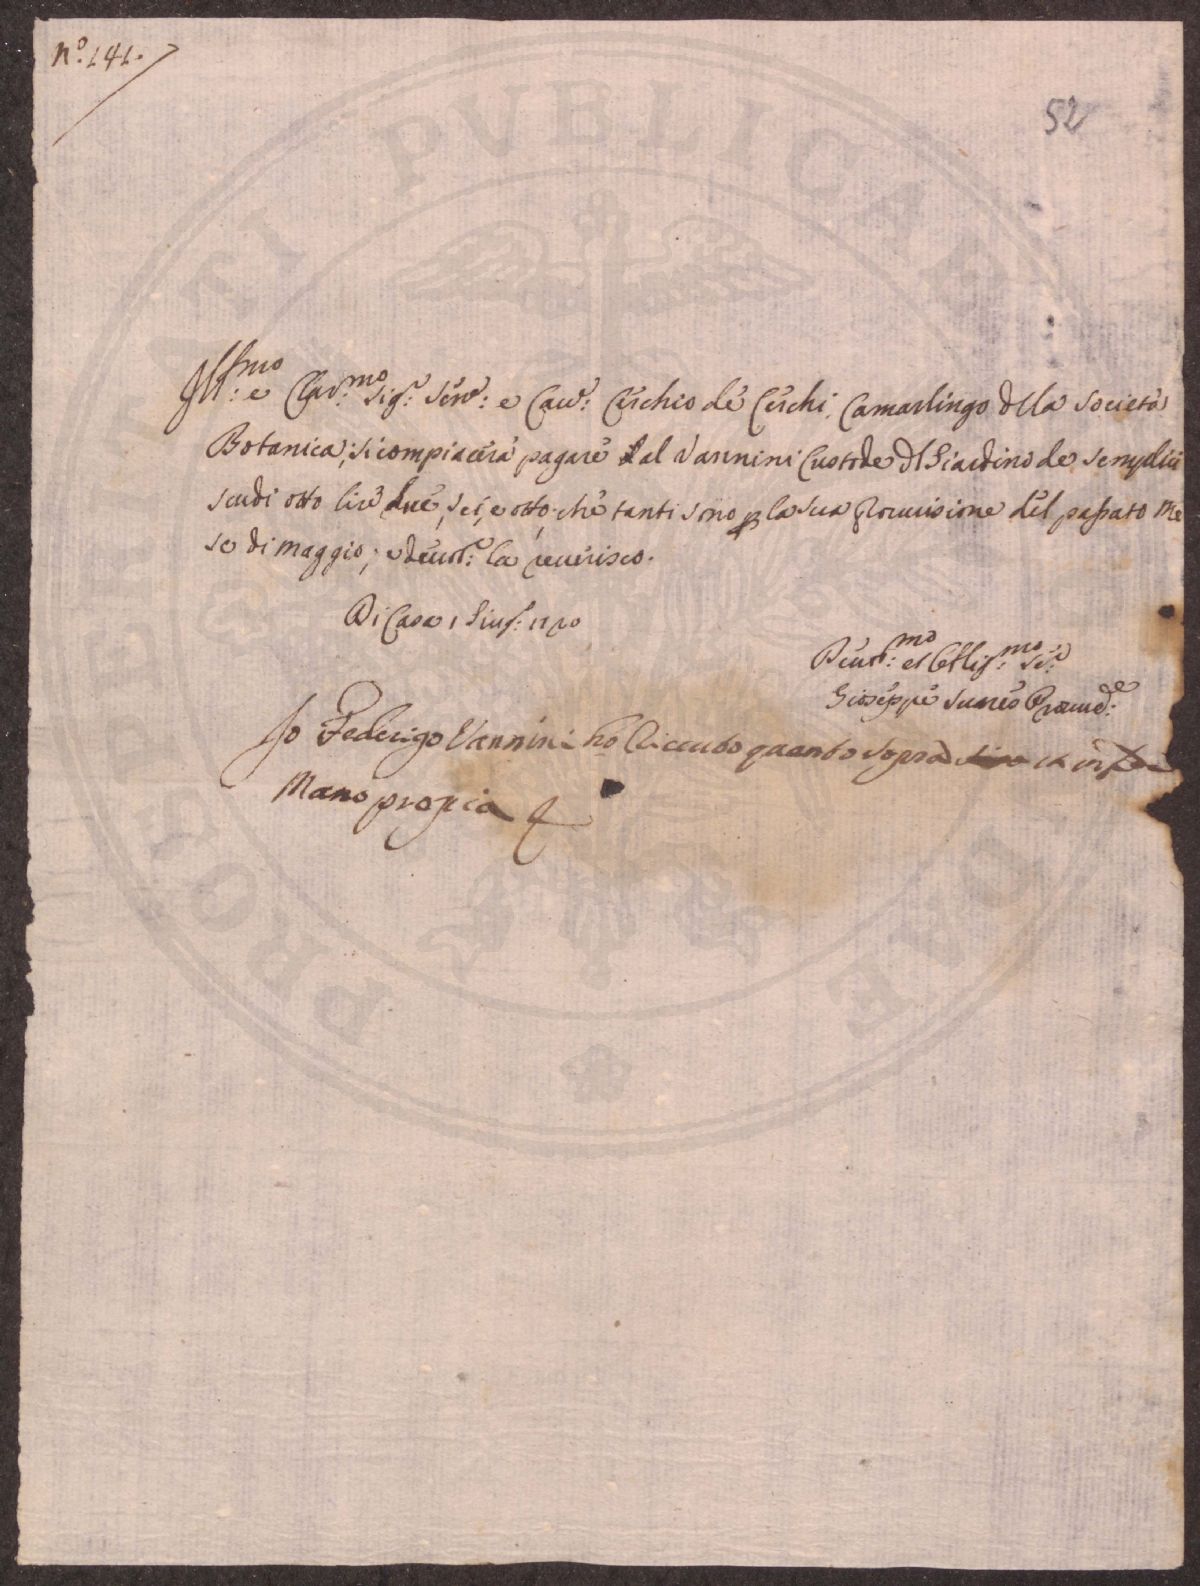 Nº. 141.
52
Ill:mo e Clar:mo Sig:r Sen:re e Cav:re Cerchio de Cerchi Camarlingo della Società
Botanica; si compiacerà pagare al Vannini Custode del Giardino de Semplici
scudi otto lire due, sei, e otto, che tanti sono p la sua Provvisione del passato Me
se di Maggio; e devot:e la reverisco.
Di Casa 1 Giug:o 1720
Devot:mo et Obblig:mo Se:re
Giuseppe Suares Provved:e
Io Federigo Vannini ho Riceuto quanto sopra
Mano propia
PROPRIETAS PVBLICAE